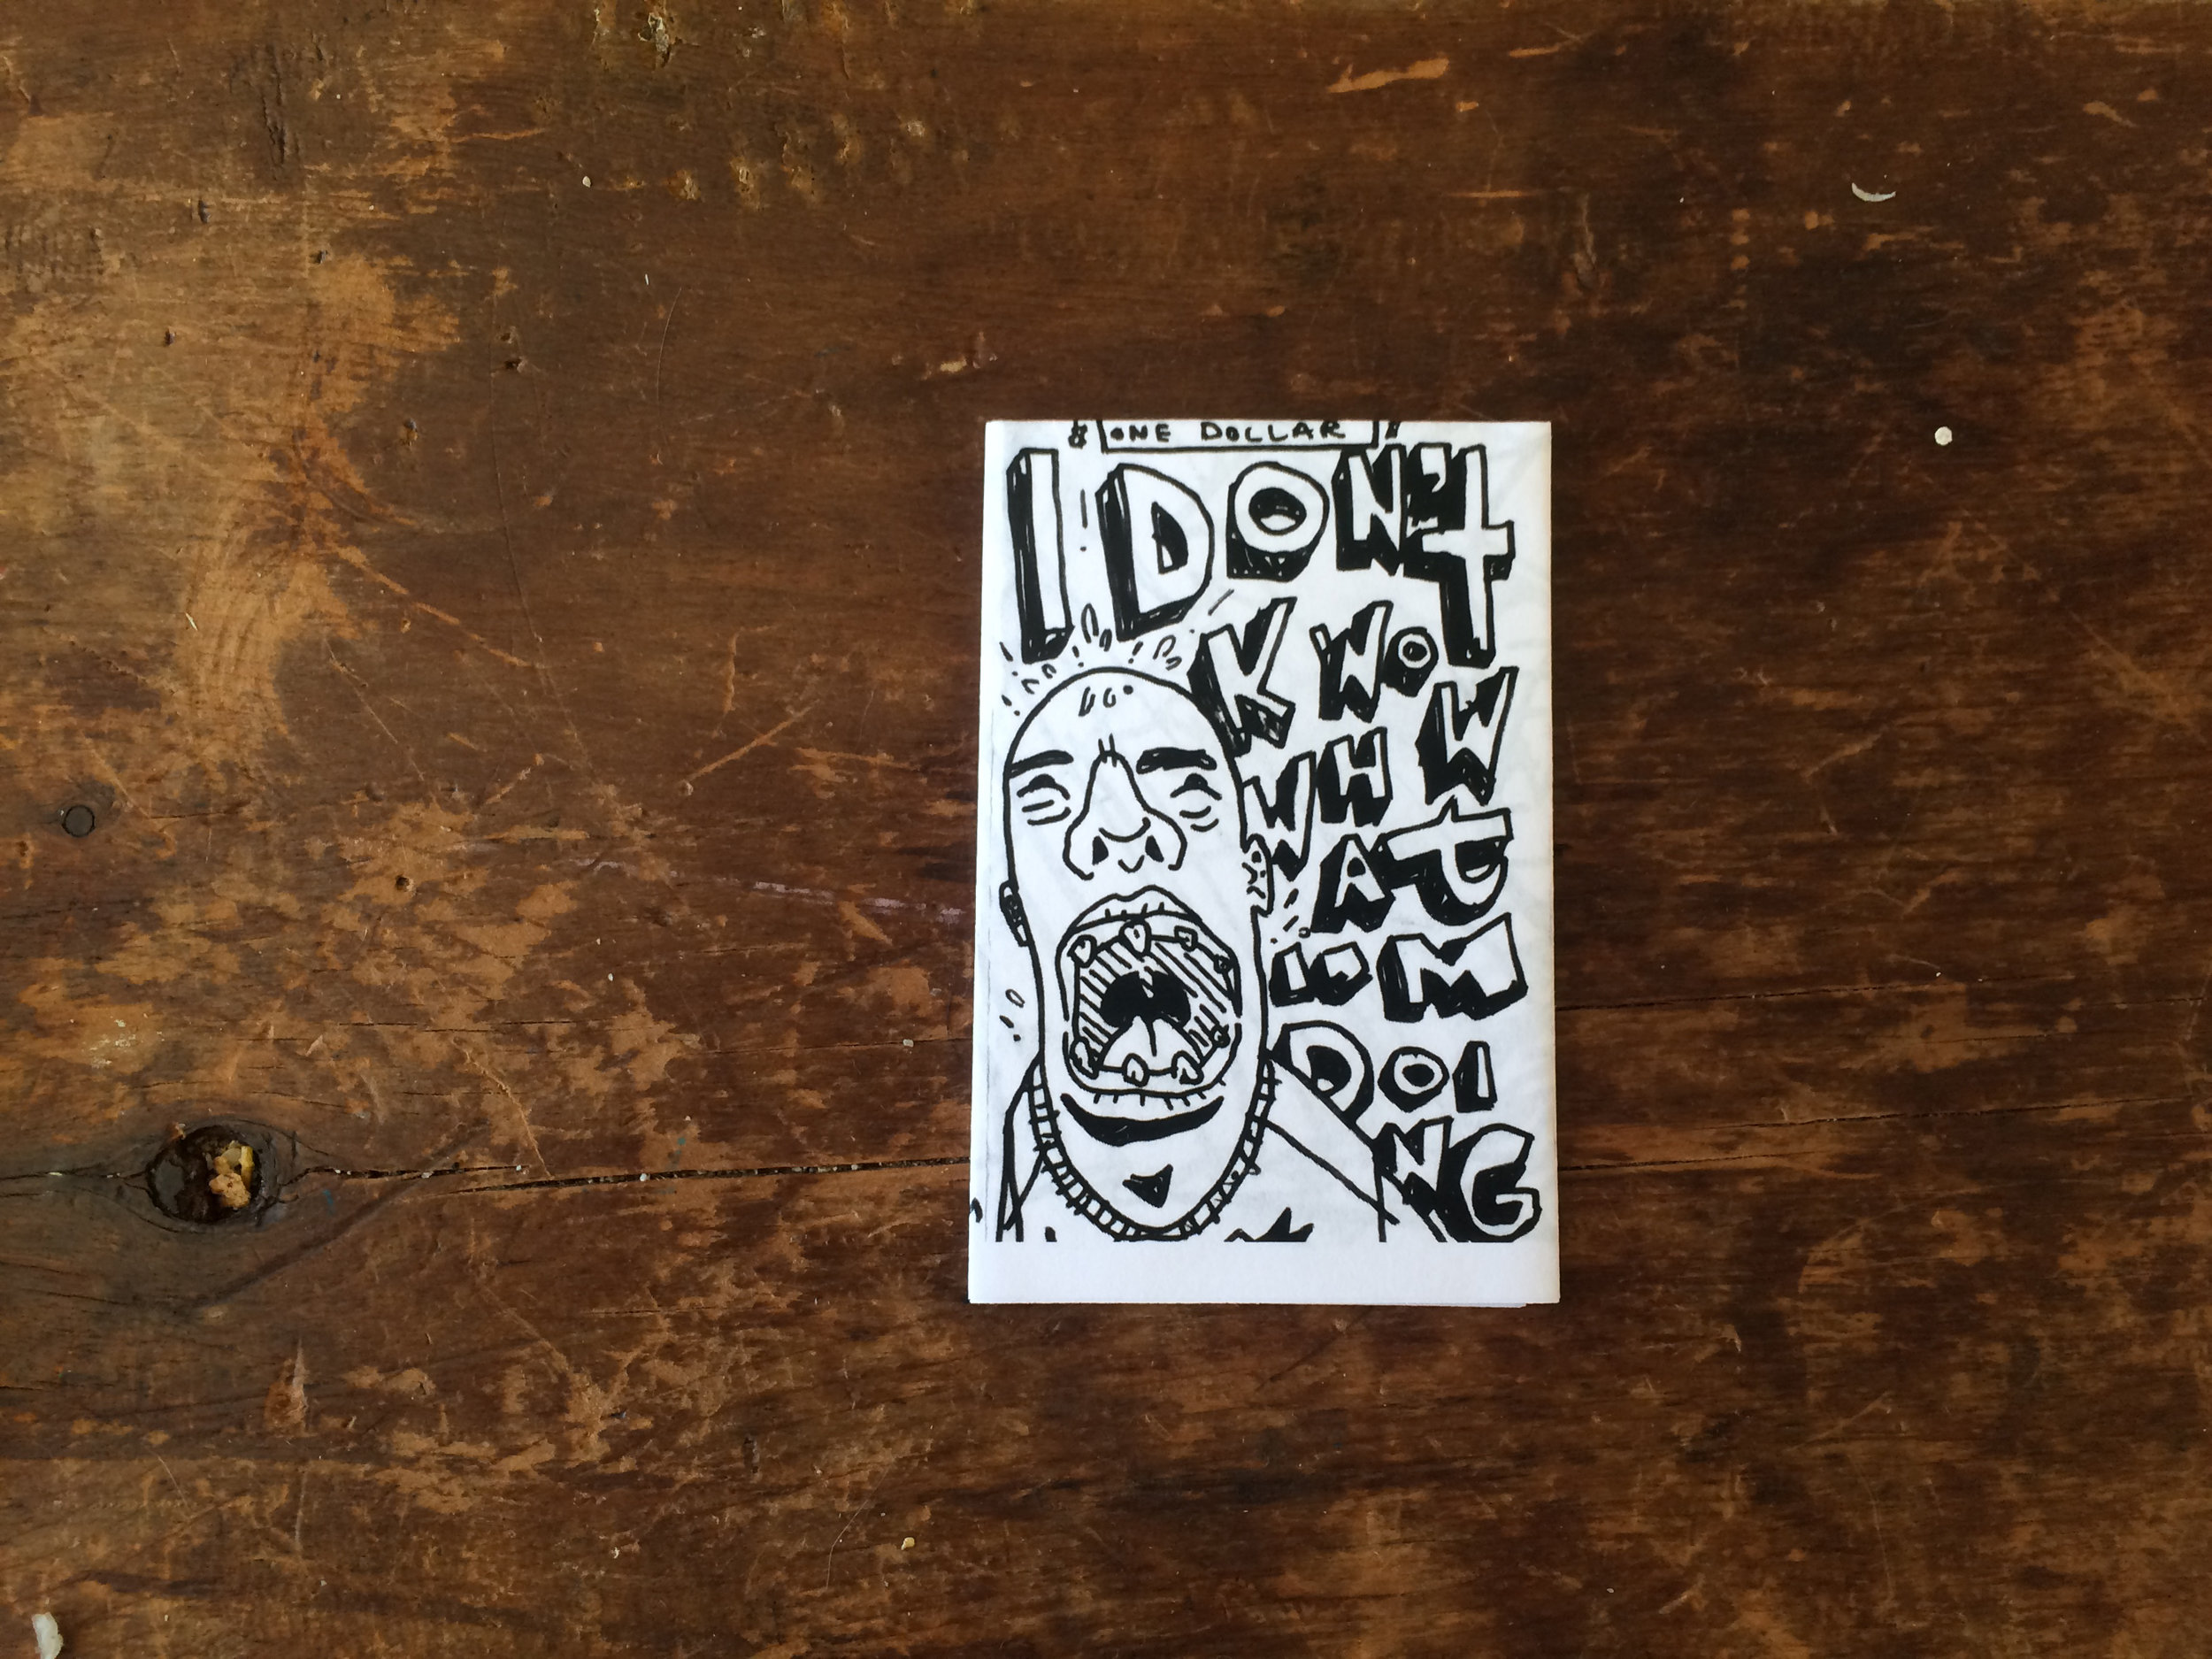 ONE DOLLAR
I DON't
KNOW
WHAt
I'M
DOI
NG